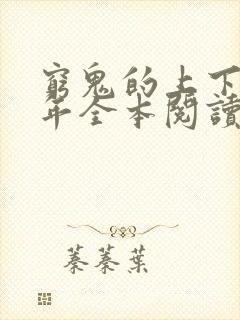 窮鬼的上下
年全本閱讀
蓁蓁葉